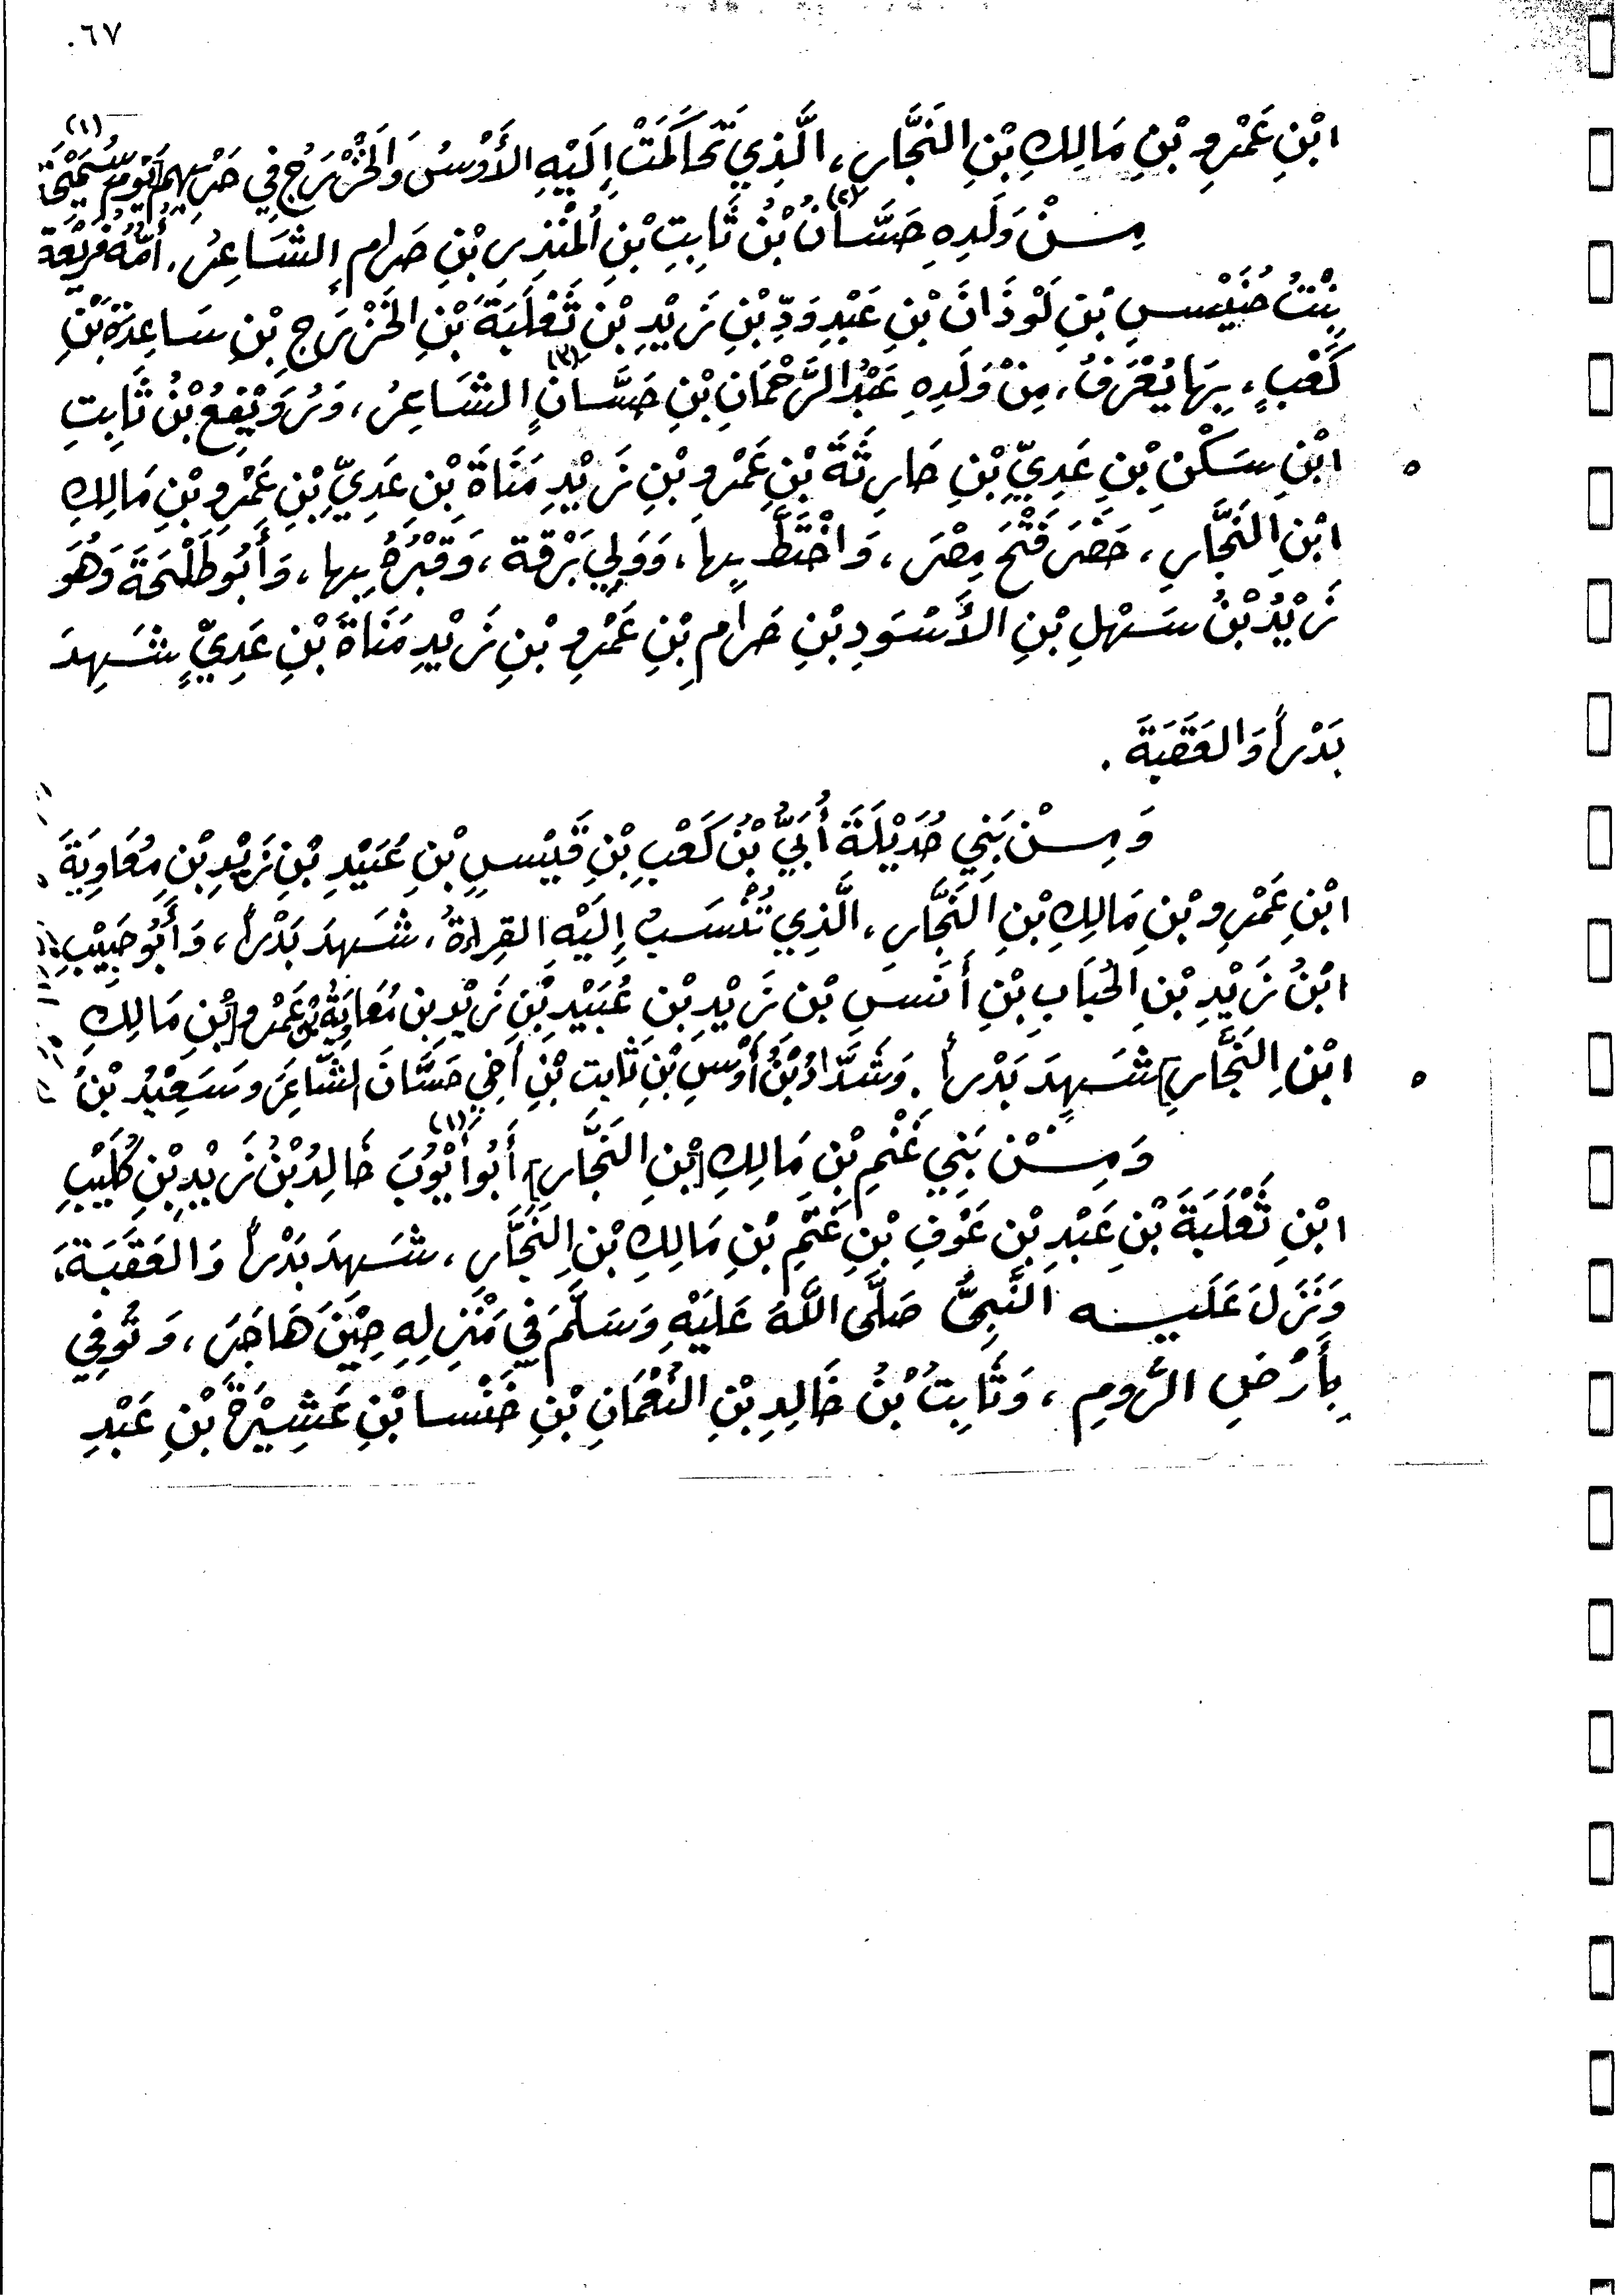 ٦٧.
ابْنِ عَمْرِو بْنِ مَالِكِ بْنِ النَّجَّارِ، الَّذِي تَحَاكَمَتْ إِلَيْهِ الأَوْسُ وَالخَزْرَجُ فِي حَرْبِهِم يَوْمَ سُمَيْحَةَ (١)
مِنْ وَلَدِهِ حَسَّانُ (٢) بْنُ ثَابِتِ بْنِ المُنْذِرِ بْنِ حَرامٍ الشَاعِرُ. أُمُّهُ فُرَيْعَة
بِنْتُ خُنَيْسِ بْنِ لَوْذَانَ بْنِ عَبْدِ وَدِّ بْنِ زَيْدِ بْنِ ثَعْلَبَةَ بْنِ الخَزْرَجِ بْنِ سَاعِدَةَ بْنِ
كَعْبٍ، بِهَا يُعْرَفُ، مِنْ وَلَدِهِ عَبْدُ الرَّحْمَانِ بْنِ حَسَّانٍ (٣) الشَاعِرُ، وَرُوَيْفِعُ بْنُ ثَابِتِ
ابْنِ سَكْنِ بْنِ عَدِيِّ بْنِ حَارِثَةَ بْنِ عَمْرِو بْنِ زَيْدِ مَنَاةَ بْنِ عَدِيِّ بْنِ عَمْرِو بْنِ مَالِكِ
ابْنِ النَّجَّارِ، حَضَرَ فَتْحَ مِصْرَ، وَاخْتَطَّ بِها، وَوَلِيَ بَرْقة، وَقَبْرُهُ بِها، وَأَبُو طَلْحَةَ وَهُوَ
زَيْدُ بْنُ سَهْلِ بْنِ الأَسْوَدِ بْنِ حَرامِ بْنِ عَمْرِو بْنِ زَيْدِ مَنَاةَ بْنِ عَدِيٍّ شَهِدَ
بَدْراً وَالعَقَبَةَ.
وَمِنْ بَنِي حُدَيْلَةَ أُبَيُّ بْنُ كَعْبِ بْنِ قَيْسِ بْنِ عُبَيْدِ بْنِ زَيْدِ بْنِ مُعَاوِيَةَ
ابْنِ عَمْرِو بْنِ مَالِكِ بْنِ النَّجَّارِ، الَّذِي تُنْسَبُ إِلَيْهِ القِراءةُ، شَهِدَ بَدْراً، وَأَبُو حَبِيْبِ
ابْنُ زَيْدِ بْنِ الحُبَابِ بْنِ أَنَسِ بْنِ زَيْدِ بْنِ عُبَيْدِ بْنِ زَيْدِ بنِ مُعَاوِيَةَ بْنِ عَمْرِو [بْنِ مَالِكِ
ابْنِ النَّجَّارِ] شَهِدَ بَدْراً. وَشَدَّادُ بْنُ أَوْسِ بْنِ ثَابت بْنِ أَخِي حَسَّانَ الشَّاعِرَ وسَعِيْدُ بْنُ
وَمِنْ بَنِي غَنْمِ بْنِ مَالِكِ [بْنِ النَّجَّارِ] أَبُو أَيُّوبَ (١) خَالِدُ بْنُ زَيْدِ بْنِ كُلَيْبِ
ابْنِ ثَعْلَبَةَ بْنِ عَبْدِ بْنِ عَوْفِ بْنِ غَنْمِ بْنِ مَالِكِ بْنِ النَّجَّارِ، شَهِدَ بَدْراً وَالعَقَبَةَ،
وَنَزَلَ عَلَيه النَّبِيُّ صَلَّى اللَّهُ عَلَيْهِ وَسَلَّمَ فِي مَنْزِلِهِ حِيْنَ هَاجَرَ، وَتُوفِي
بِأَرْضِ الرُّومِ، وَثَابِتُ بْنُ خَالِدِ بْنِ النُعْمَانِ بْنِ خَنْسا بْنِ عَشِيْرَةَ بْنِ عَبْدِ